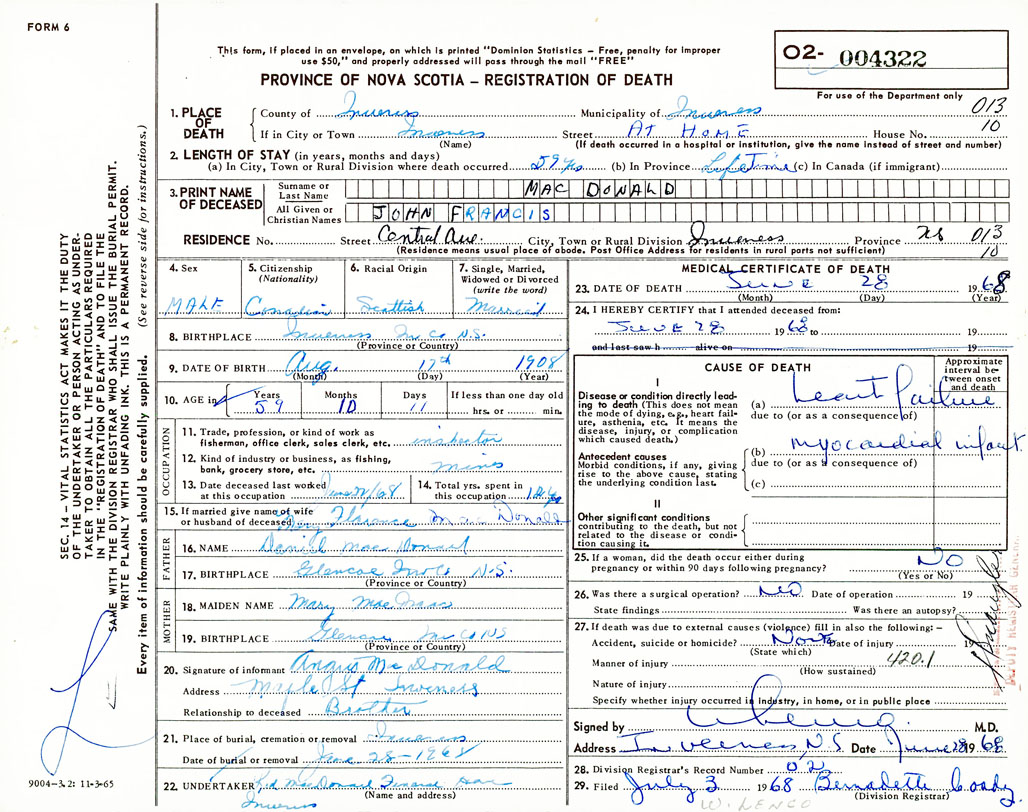 FORM 6
This form, if placed in an envelope, on which is printed "Dominion Statistics – Free, penalty for improper
use $50," and properly addressed will pass through the mail "FREE"
PROVINCE OF NOVA SCOTIA – REGISTRATION OF DEATH
02- 004322
For use of the Department only
013
10
1. PLACE OF DEATH
County of Inverness Municipality of Inverness
If in City or Town Inverness Street AT HOME House No.
(Name) (If death occurred in a hospital or institution, give the name instead of street and number)
2. LENGTH OF STAY (in years, months and days)
(a) In City, Town or Rural Division where death occurred 59 yrs (b) In Province Life Time (c) In Canada (if immigrant)
3. PRINT NAME OF DECEASED
Surname or Last Name MAC DONALD
All Given or Christian Names JOHN FRANCIS
RESIDENCE No. Street Central Ave. City, Town or Rural Division Inverness Province NS 013
(Residence means usual place of abode. Post Office Address for residents in rural parts not sufficient) 10
4. Sex
MALE
5. Citizenship
(Nationality)
Canadian
6. Racial Origin
Scottish
7. Single, Married,
Widowed or Divorced
(write the word)
Married
8. BIRTHPLACE Inverness In Co N.S.
(Province or Country)
9. DATE OF BIRTH Aug. 17th 1908
(Month) (Day) (Year)
10. AGE in Years Months Days If less than one day old
59 10 11 hrs. or min.
OCCUPATION
11. Trade, profession, or kind of work as
fisherman, office clerk, sales clerk, etc. inspector
12. Kind of industry or business, as fishing,
bank, grocery store, etc. mines
13. Date deceased last worked
at this occupation
14. Total yrs. spent in
this occupation
15. If married give name of wife
or husband of deceased Mary Florence Mac Donald
FATHER
16. NAME Daniel Mac Donald
17. BIRTHPLACE Glencoe Inv Co N.S.
(Province or Country)
MOTHER
18. MAIDEN NAME Mary Mac Isaac
19. BIRTHPLACE Glencoe In Co NS
(Province or Country)
20. Signature of informant Angus MacDonald
Address Maple St Inverness
Relationship to deceased Brother
21. Place of burial, cremation or removal Inverness
Date of burial or removal June 28-1968
22. UNDERTAKER MacDonald Funeral
(Name and address)
Inverness
MEDICAL CERTIFICATE OF DEATH
23. DATE OF DEATH JUNE 28 1968
(Month) (Day) (Year)
24. I HEREBY CERTIFY that I attended deceased from:
JUNE 28 1968 to 19
and last saw h alive on 19
CAUSE OF DEATH
Approximate
interval be-
tween onset
and death
I
Disease or condition directly lead-
ing to death (This does not mean
the mode of dying, e.g., heart fail-
ure, asthenia, etc. It means the
disease, injury, or complication
which caused death.)
(a) heart failure
due to (or as a consequence of)
Antecedent causes
Morbid conditions, if any, giving
rise to the above cause, stating
the underlying condition last.
(b) myocardial infarct
due to (or as a consequence of)
(c)
II
Other significant conditions
contributing to the death, but not
related to the disease or condi-
tion causing it.
25. If a woman, did the death occur either during
pregnancy or within 90 days following pregnancy? NO
(Yes or No)
26. Was there a surgical operation? NO Date of operation 19
State findings Was there an autopsy?
27. If death was due to external causes (violence) fill in also the following:–
Accident, suicide or homicide? None Date of injury 19
(State which)
Manner of injury 420.1
(How sustained)
Nature of injury
Specify whether injury occurred in industry, in home, or in public place
Signed by M.D.
Address Inverness N.S. Date June 28 1968
28. Division Registrar's Record Number 02
29. Filed July 3 1968 Bernadette Coady
(Division Registrar)
W. LENCO
DEPUTY REGISTRAR GENERAL
SEC. 14 – VITAL STATISTICS ACT MAKES IT THE DUTY
OF THE UNDERTAKER OR PERSON ACTING AS UNDER-
TAKER TO OBTAIN ALL THE PARTICULARS REQUIRED
IN THE "REGISTRATION OF DEATH" AND TO FILE THE
SAME WITH THE DIVISION REGISTRAR WHO SHALL ISSUE THE BURIAL PERMIT.
WRITE PLAINLY WITH UNFADING INK. THIS IS A PERMANENT RECORD.
Every item of information should be carefully supplied. (See reverse side for instructions.)
9004-3.2: 11-3-65